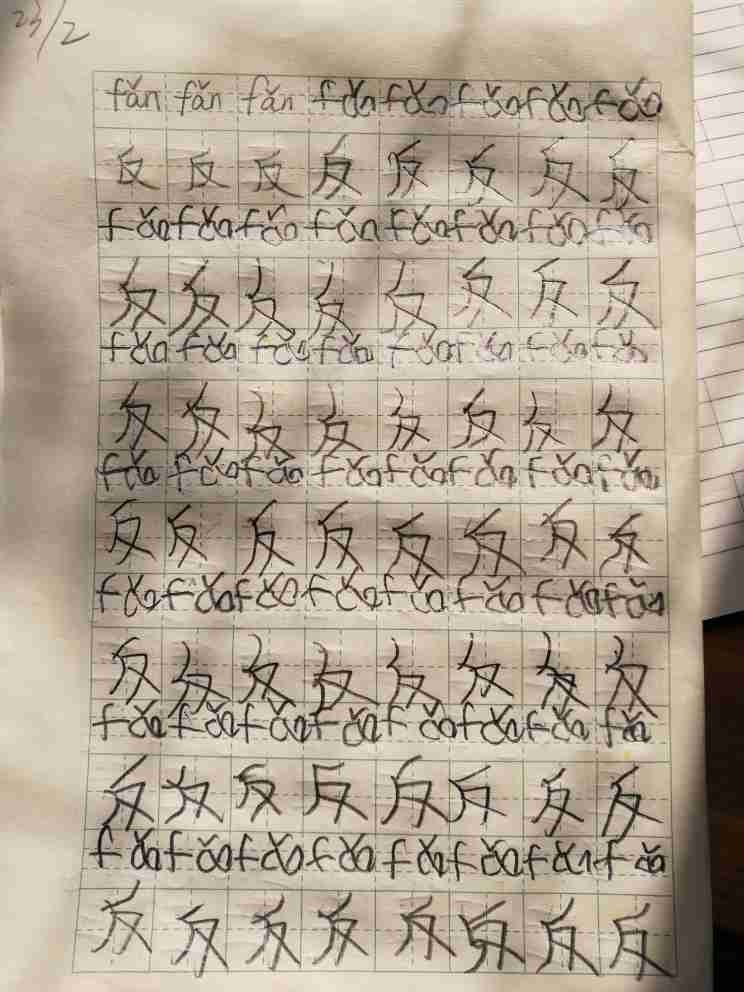 23/2
fǎn fǎn fǎn fǎn fǎn fǎn fǎn fǎn
反 反 反 反 反 反 反 反
fǎn fǎn fǎn fǎn fǎn fǎn fǎn fǎn
反 反 反 反 反 反 反 反
fǎn fǎn fǎn fǎn fǎn fǎn fǎn fǎn
反 反 反 反 反 反 反 反
fǎn fǎn fǎn fǎn fǎn fǎn fǎn fǎn
反 反 反 反 反 反 反 反
fǎn fǎn fǎn fǎn fǎn fǎn fǎn fǎn
反 反 反 反 反 反 反 反
fǎn fǎn fǎn fǎn fǎn fǎn fǎn fǎn
反 反 反 反 反 反 反 反
fǎn fǎn fǎn fǎn fǎn fǎn fǎn fǎn
反 反 反 反 反 反 反 反